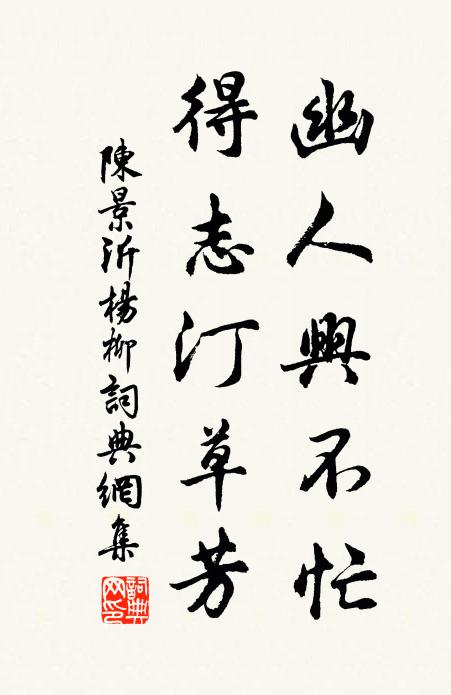 幽人興不忙
得志汀草芳
陳景沂楊柳詞典網集
詞典網印